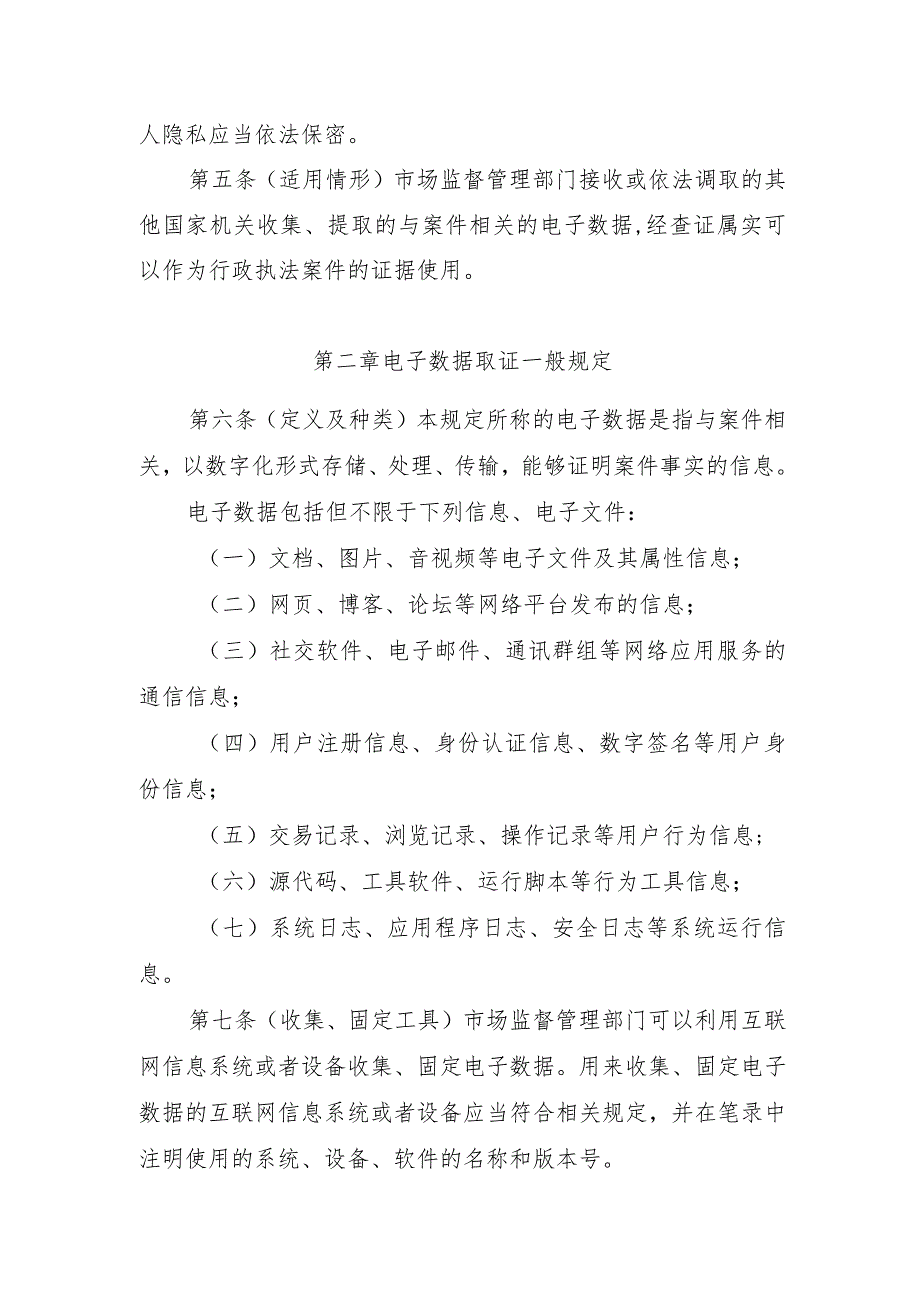 人隐私应当依法保密。
第五条（适用情形）市场监督管理部门接收或依法调取的其
他国家机关收集、提取的与案件相关的电子数据,经查证属实可
以作为行政执法案件的证据使用。
第二章电子数据取证一般规定
第六条（定义及种类）本规定所称的电子数据是指与案件相
关，以数字化形式存储、处理、传输，能够证明案件事实的信息。
电子数据包括但不限于下列信息、电子文件：
（一）文档、图片、音视频等电子文件及其属性信息；
（二）网页、博客、论坛等网络平台发布的信息；
（三）社交软件、电子邮件、通讯群组等网络应用服务的
通信信息；
（四）用户注册信息、身份认证信息、数字签名等用户身
份信息；
（五）交易记录、浏览记录、操作记录等用户行为信息；
（六）源代码、工具软件、运行脚本等行为工具信息；
（七）系统日志、应用程序日志、安全日志等系统运行信
息。
第七条（收集、固定工具）市场监督管理部门可以利用互联
网信息系统或者设备收集、固定电子数据。用来收集、固定电子
数据的互联网信息系统或者设备应当符合相关规定，并在笔录中
注明使用的系统、设备、软件的名称和版本号。